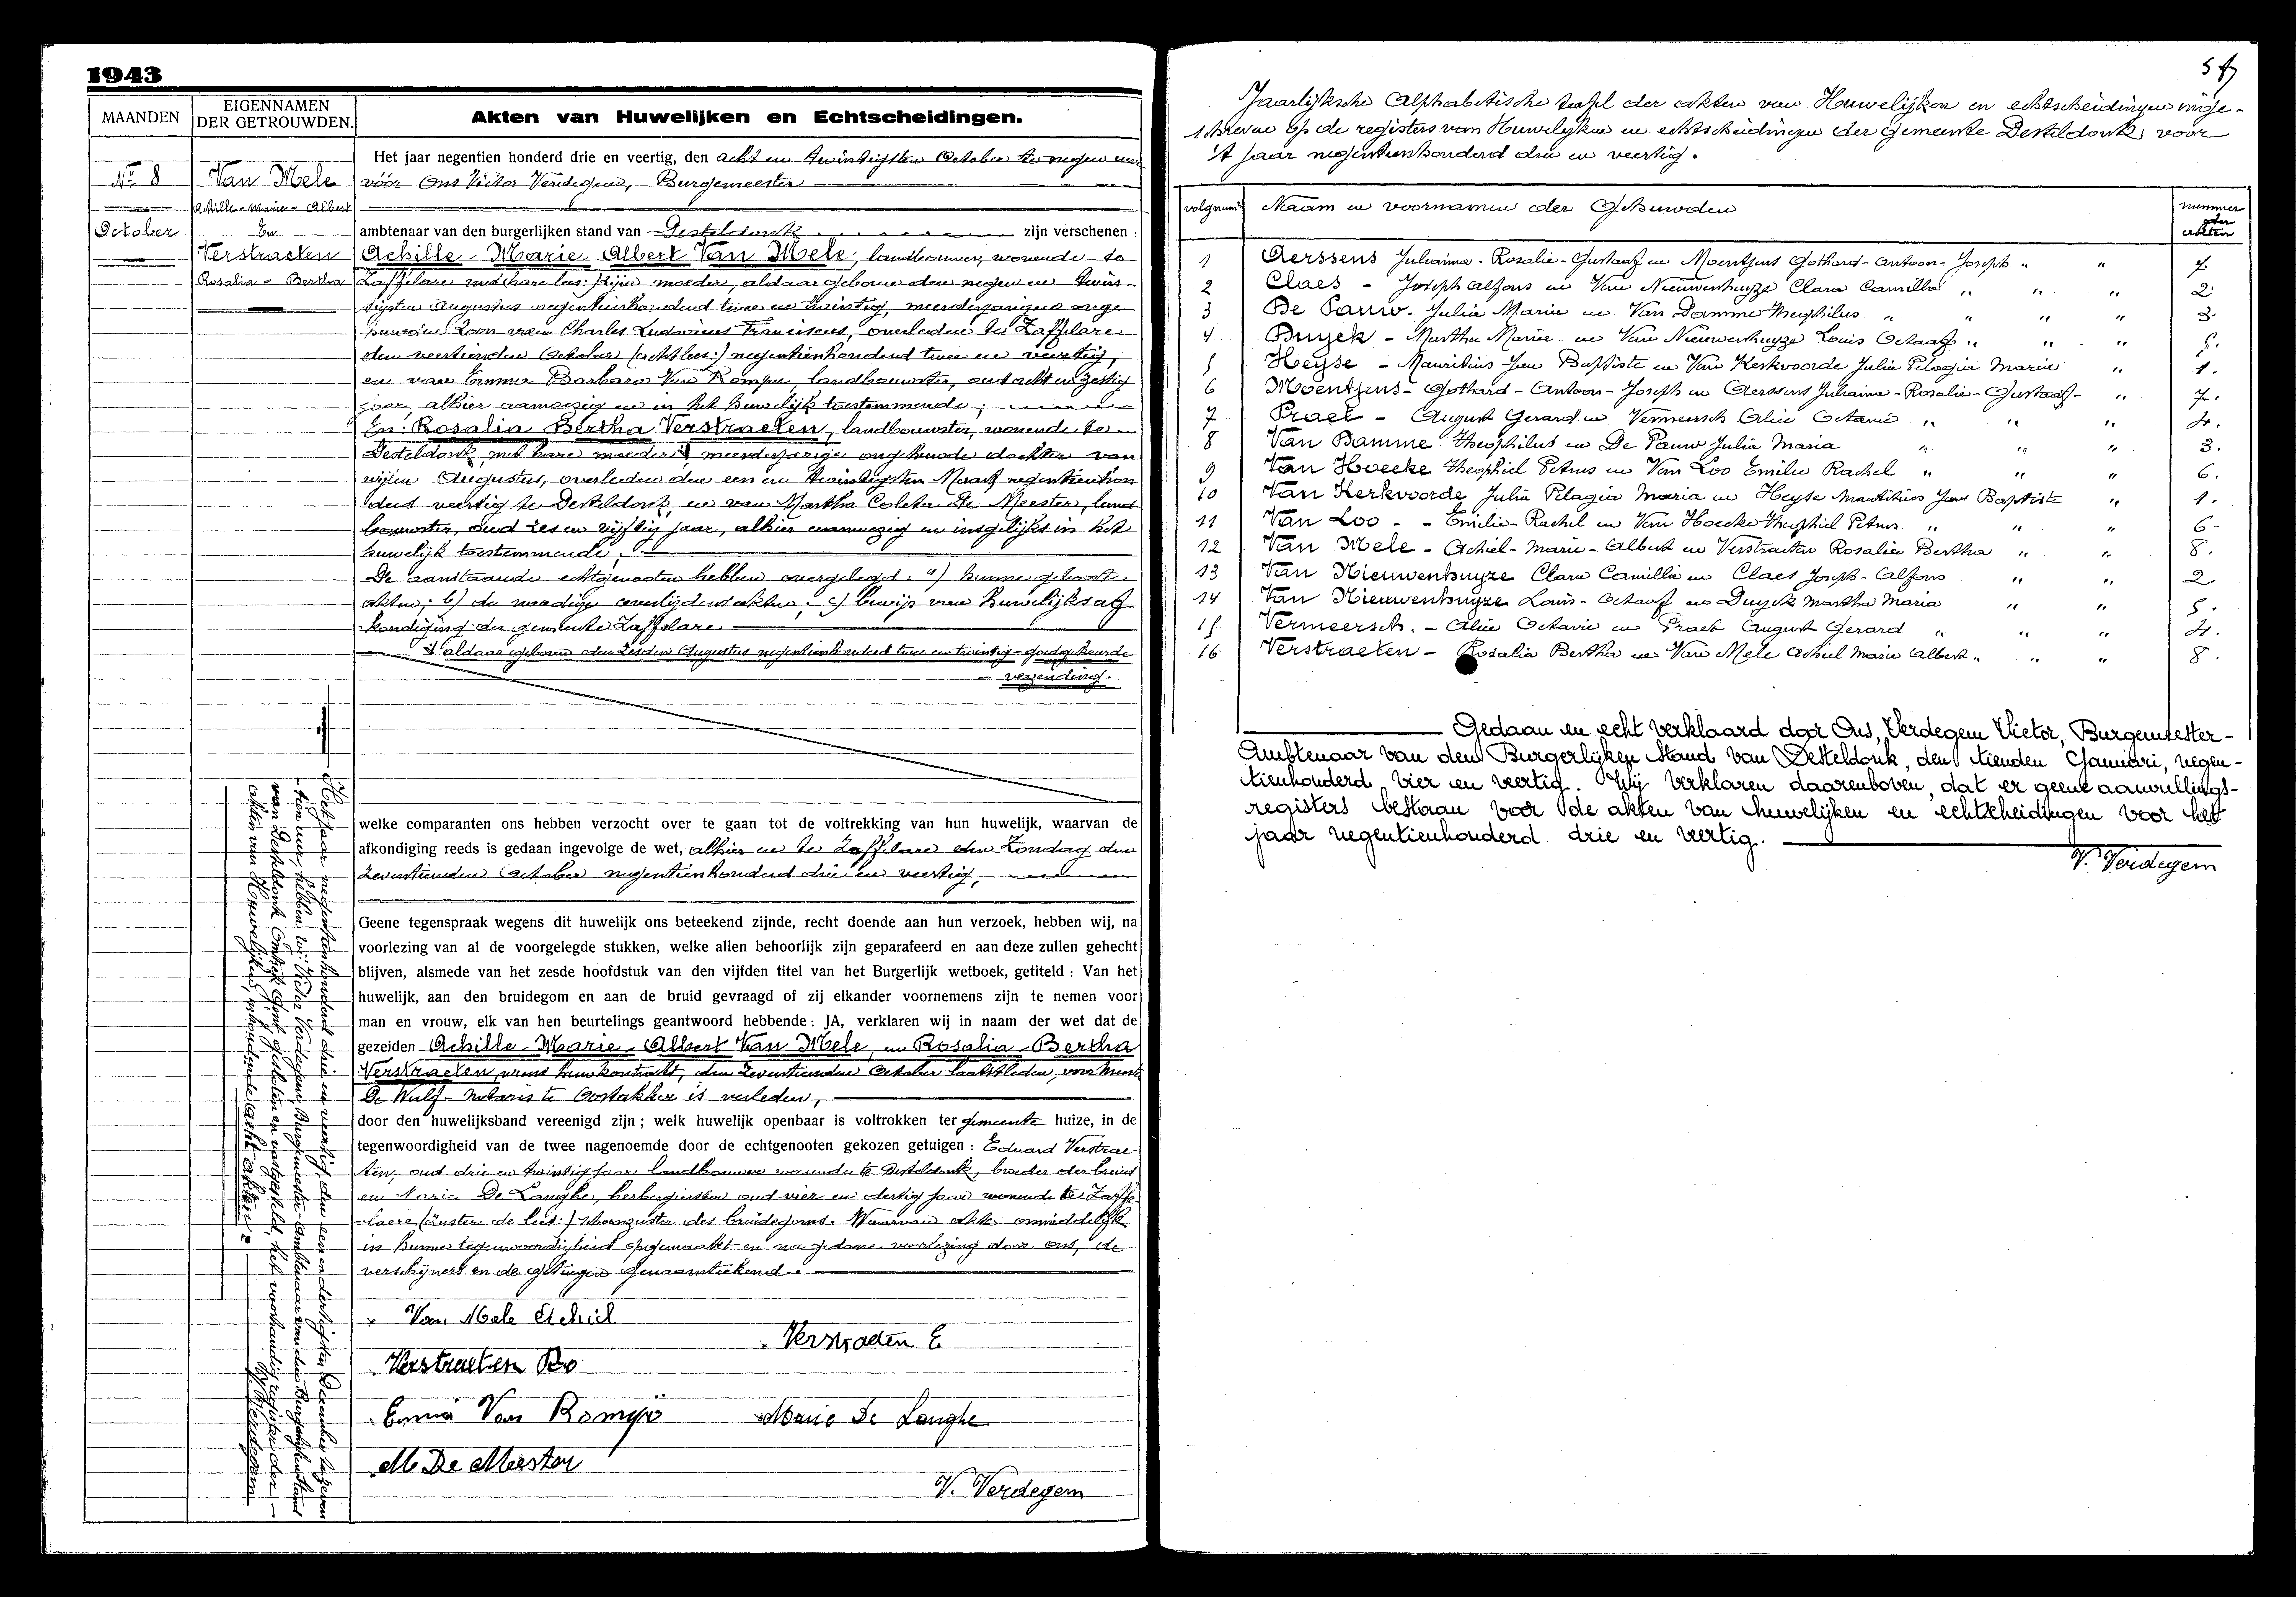 1943
MAANDEN
EIGENNAMEN
DER GETROUWDEN.
Akten van Huwelijken en Echtscheidingen.
No 8
October
Van Mele
Achille-Marie-Albert
En
Verstraeten
Rosalia-Bertha
Het jaar negentien honderd drie en veertig, den acht en twintigsten October te negen uur
vóór Ons Victor Verdegem, Burgemeester
ambtenaar van den burgerlijken stand van Desteldonk zijn verschenen :
Achille-Marie-Albert Van Mele, landbouwer, wonende te
Zaffelare met hare lees: zijne moeder, aldaar geboren den negen en twin-
tigsten Augustus negentienhonderd twee en twintig, meerderjarigen onge-
huwden zoon van Charles Ludovicus Franciscus, overleden te Zaffelare
den veertienden October (acht lees:) negentienhonderd twee en veertig,
en van Emma Barbara Van Rompu, landbouwster, oud acht en zestig
jaar, alhier aanwezig en in het huwelijk toestemmende;
En: Rosalia Bertha Verstraeten, landbouwster, wonende te
Desteldonk, met hare moeder, meerderjarige ongehuwde dochter van
wijlen Augustus, overleden den een en twintigsten Maart negentienhon
derd veertig te Desteldonk, en van Martha Coleta De Meester, land-
bouwster, oud zes en vijftig jaar, alhier aanwezig en insgelijks in het
huwelijk toestemmende.
De aanstaande echtgenooten hebben overgelegd: a) hunne geboorte-
akten; b) de noodige overlijdensakten; c) bewijs van huwelijksaf-
kondiging der gemeente Zaffelare.
aldaar geboren den zesden Augustus negentienhonderd twee en twintig - goedgekeurde
verzending.
welke comparanten ons hebben verzocht over te gaan tot de voltrekking van hun huwelijk, waarvan de
afkondiging reeds is gedaan ingevolge de wet, alhier en te Zaffelare den Zondag den
zeventienden October negentienhonderd drie en veertig,
Geene tegenspraak wegens dit huwelijk ons beteekend zijnde, recht doende aan hun verzoek, hebben wij, na
voorlezing van al de voorgelegde stukken, welke allen behoorlijk zijn geparafeerd en aan deze zullen gehecht
blijven, alsmede van het zesde hoofdstuk van den vijfden titel van het Burgerlijk wetboek, getiteld : Van het
huwelijk, aan den bruidegom en aan de bruid gevraagd of zij elkander voornemens zijn te nemen voor
man en vrouw, elk van hen beurtelings geantwoord hebbende: JA, verklaren wij in naam der wet dat de
gezeiden Achille-Marie-Albert Van Mele, en Rosalia-Bertha
Verstraeten, wiens huwkontrakt, den zeventienden October laatstleden, voor
De Wulf - notaris te Oostakker is verleden,
door den huwelijksband vereenigd zijn ; welk huwelijk openbaar is voltrokken ter gemeente huize, in de
tegenwoordigheid van de twee nagenoemde door de echtgenooten gekozen getuigen : Eduard Verstrae-
ten, oud drie en twintig jaar, landbouwer wonende te Desteldonk, broeder der bruid
en Marie De Langhe, herbergierster oud vier en dertig jaar wonende te Zaffe-
laere (zuster de lees:) schoonzuster des bruidegoms. Waarvan akte onmiddelijk
in hunne tegenwoordigheid opgemaakt en na gedane voorlezing door ons, de
verschijners en de getuigen genaamteekend.
Van Mele Achiel
Verstraeten E
Verstraeten Ro
Emma Van Rompu
Marie De Langhe
M De Meester
V. Verdegem
Het jaar negentienhonderd drie en veertig, den een en dertigsten December te zeven
tien uur, hebben wij Victor Verdegem, Burgemeester-Ambtenaar van den Burgerlijken Stand
van Desteldonk Omtrek Gent gesloten en vastgesteld, het voorhandig register der
akten van Huwelijken, inhoudende acht akten.
V. Verdegem
Jaarlijksche Alphabetische tafel der akten van Huwelijken en echtscheidingen inge-
schreven op de registers van Huwelijken en echtscheidingen der gemeente Desteldonk voor
't jaar negentienhonderd drie en veertig.
volgnum Naam en voornamen der Gehuwden nummer der akten
1 Aerssens Julianna-Rosalie-Gustaaf en Moentjens Gothard-Antoon-Joseph " " 7.
2 Claes - Joseph Alfons en Van Nieuwenhuyze Clara Camilla " " " 2.
3 De Pauw. Julia Maria en Van Damme Theophilus " " " " 3.
4 Duyck - Martha Maria en Van Nieuwenhuyze Louis Octaaf " " " 5.
5 Heyse - Mauritius Jan Baptiste en Van Kerkvoorde Julia Pelagia Maria " 1.
6 Moentjens - Gothard-Antoon-Joseph en Aerssens Julianna-Rosalie-Gustaaf- " 7.
7 Praet - August Gerard en Vermeersch Alice Octavie " " " 4.
8 Van Damme Theophilus en De Pauw Julia Maria " " " 3.
9 Van Hoecke Theophiel Petrus en Van Loo Emilie Rachel " " " 6.
10 Van Kerkvoorde Julia Pelagia Maria en Heyse Mauritius Jan Baptiste " 1.
11 Van Loo - Emilie-Rachel en Van Hoecke Theophiel Petrus " " " 6.
12 Van Mele - Achiel-Marie-Albert en Verstraeten Rosalia Bertha " " 8.
13 Van Nieuwenhuyze Clara Camilla en Claes Joseph-Alfons " " 2.
14 Van Nieuwenhuyze Louis-Octaaf en Duyck Martha Maria " " 5.
15 Vermeersch. - Alice Octavie en Praet August Gerard " " " 4.
16 Verstraeten - Rosalia Bertha en Van Mele Achiel Marie Albert " " " 8.
Gedaan en echt verklaard door Ons, Verdegem Victor, Burgemeester-
Ambtenaar van den Burgerlijken Stand van Desteldonk, den tienden Januari, negen-
tienhonderd vier en veertig. Wij verklaren daarenboven, dat er geene aanvullings-
registers bestaan voor de akten van huwelijken en echtscheidingen voor het
jaar negentienhonderd drie en veertig.
V. Verdegem